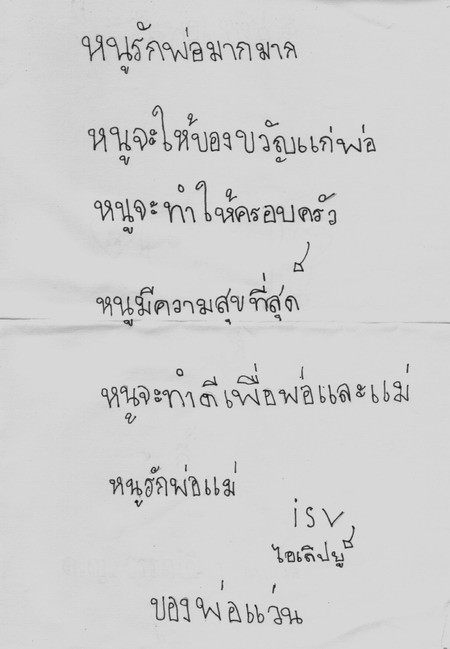 หนูรักพ่อมากมาก
หนูจะให้ของขวัญแก่พ่อ
หนูจะทำให้ครอบครัว
หนูมีความสุขที่สุด
หนูจะทำดีเพื่อพ่อและแม่
หนูรักพ่อแม่
ของพ่อแว่น